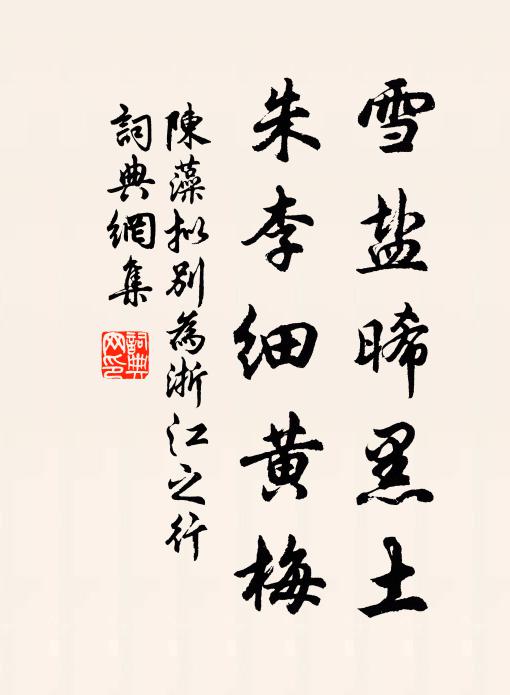 雪盐晞黑土
朱李细黄梅
陳藻拟別為浙江之行
詞典網集
詞典网印